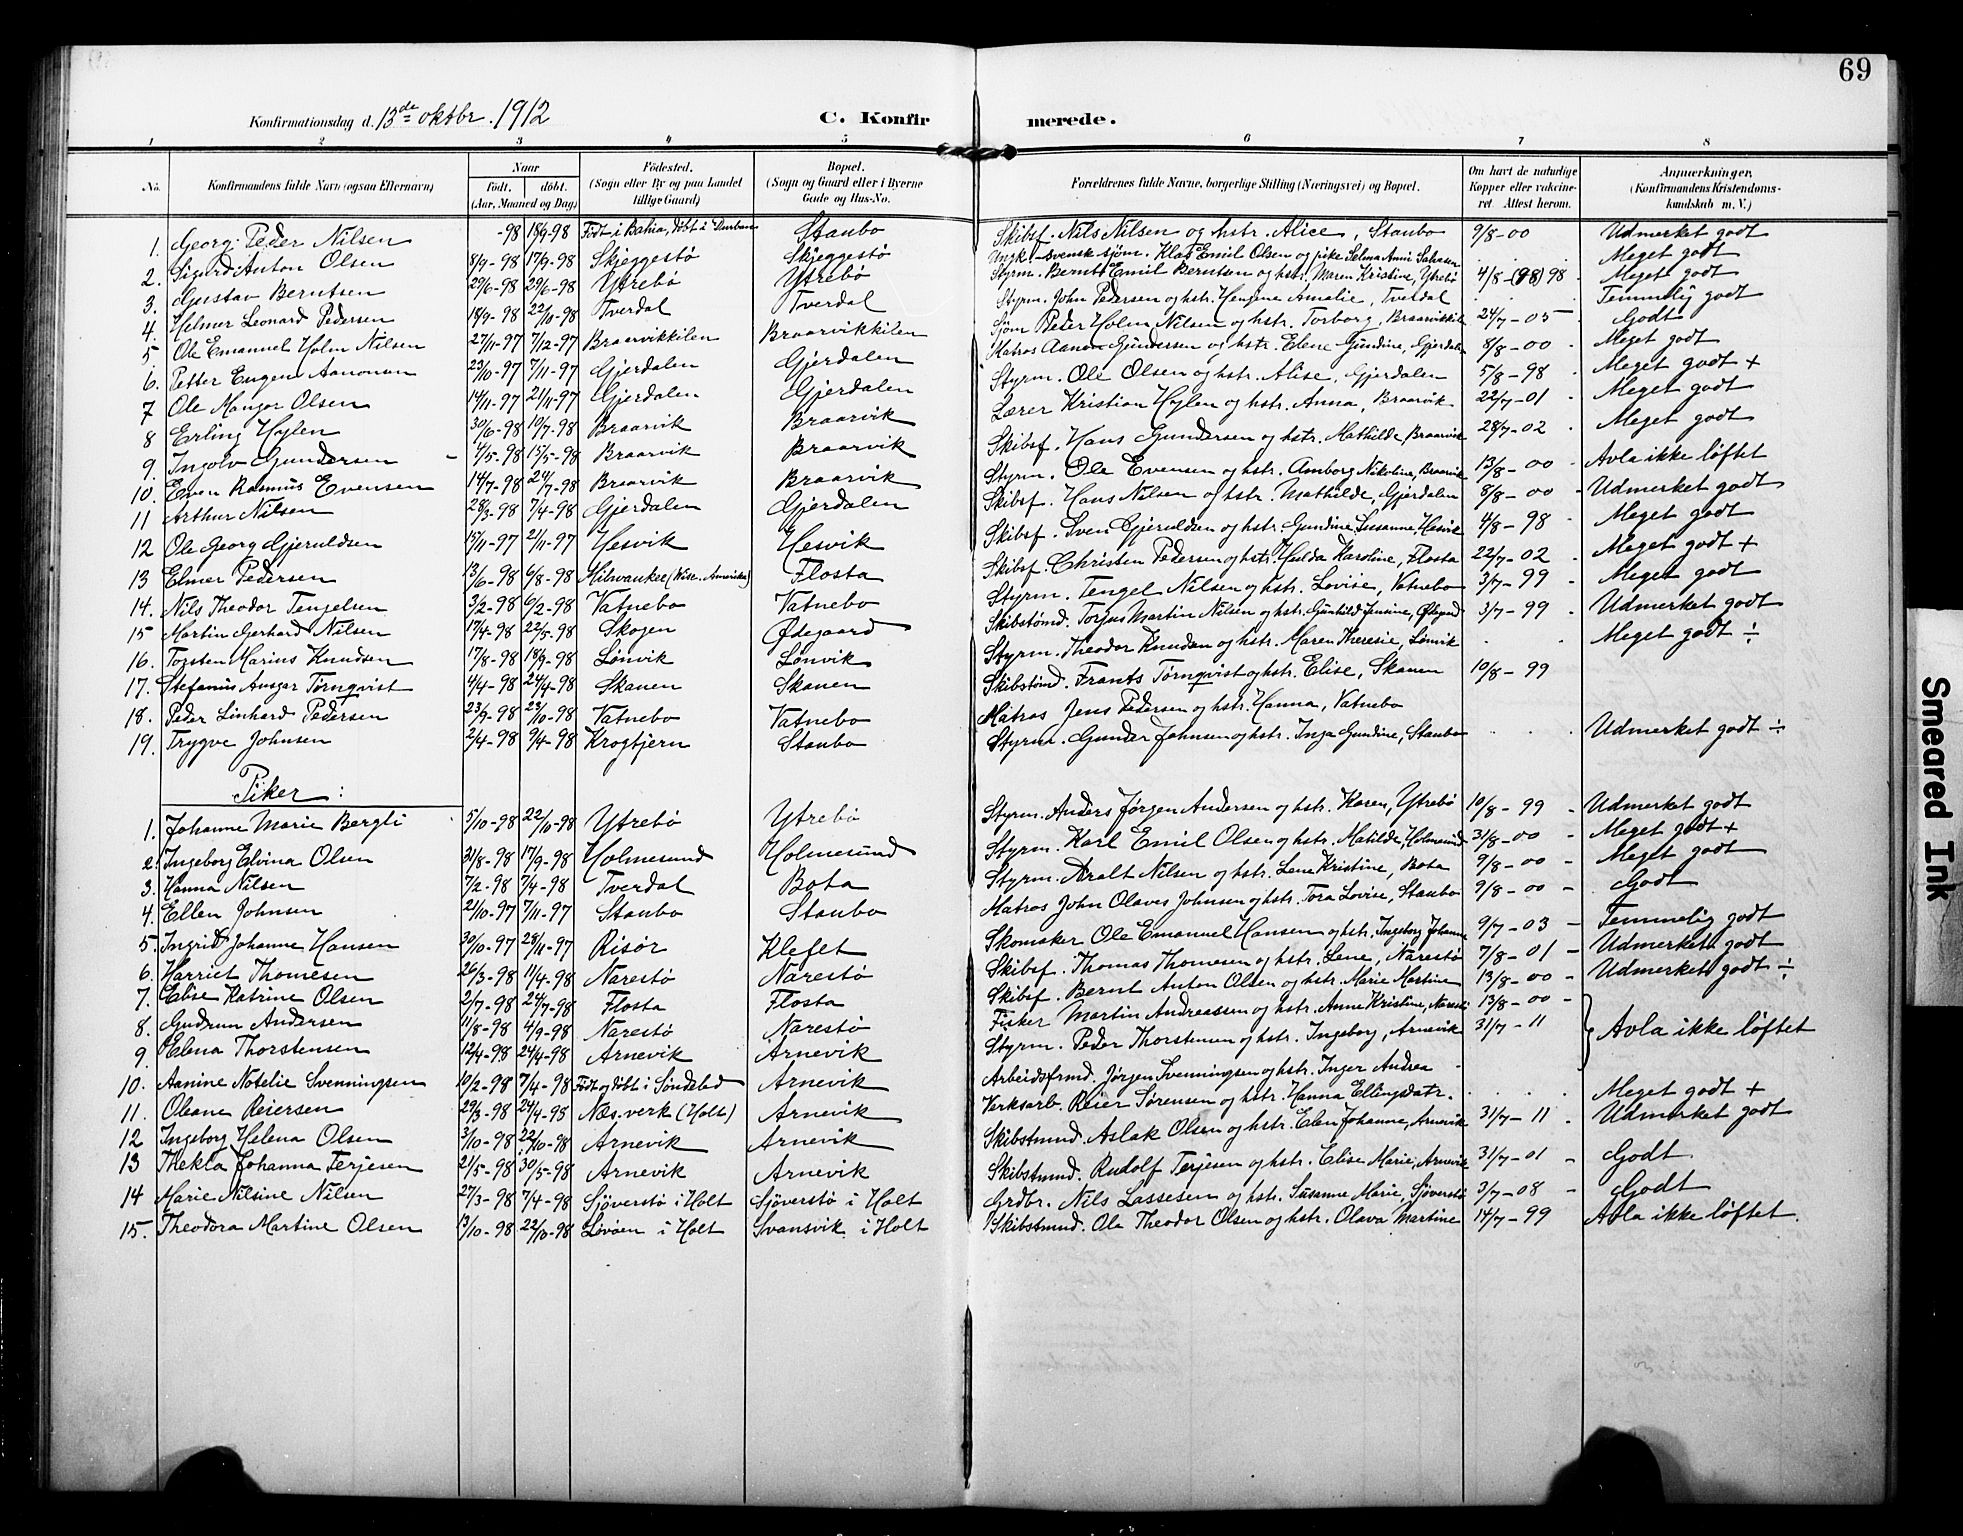 69
Konfirmationsdag d. 13de oktbr. 1912 C. Konfirmerede.
1 2 3 4 5 6 7 8
No. Konfirmandens fulde Navn (ogsaa Efternavn) Naar født. døbt. (Aar, Maaned og Dag) Fødested. (Sogn eller By og paa Landet tillige Gaard) Bopæl. (Sogn og Gaard eller i Byerne Gade og Hus-No. Forældrenes fulde Navne, borgerlige Stilling (Næringsvei) og Bopæl. Om havt de naturlige Kopper eller vakcineret. Attest herom. Anmerkninger. (Konfirmandens Kristendomskundskab m. V.)
1. Georg Peder Nilsen -98 18/9-98 Født i Bahia, døbt i Durban Staubo Skibsf. Nils Nilsen og hstr. Alice, Staubo 9/8-00 Udmerket godt
2. Sigurd Anton Olsen 8/9-98 17/9-98 Skjeggestø Skjeggestø Ungk. svensk sjøm. Klas Emil Olsen og pike Selma Meget godt
3. Gustav Berntsen 29/6-98 Ytrebø Ytrebø Styrm. Bernt Emil Berntsen og hstr. Maren Kristine, Ytrebø 4/8-(98) 98 Meget godt
4. Helmer Leonard Pedersen 18/9-98 22/11-98 Tverdal Tverdal Styrm. John Pedersen og hstr. Amalie, Tverdal Temmelig godt
5 Ole Emanuel Holm Nilsen 27/11-97 7/12-97 Braarvikkilen Braarvikkilen Sjøm. Peder Holm Nilsen og hstr. Torborg, Braarvikkil 24/7-05 Godt
6. Petter Eugen Aanonsen 23/10-97 7/11-97 Gjerdalen Gjerdalen Matros Aanon Gundersen og hstr. Elene Gundine, Gjerdalen 8/8-00 Meget godt
7 Ole Mangor Olsen 14/11-97 21/11-97 Gjerdalen Gjerdalen Styrm. Ole Olsen og hstr. Alise, Gjerdalen 5/8-98 Meget godt +
8 Erling Hylen 30/6-98 10/7-98 Braarvik Braarvik Lærer Kristian Hylen og hstr. Anna, Braarvik 22/7-01 Meget godt
9. Ingolv Gundersen 4/5-98 15/5-98 Braarvik Braarvik Skibsf. Hans Gundersen og hstr. Mathilde Braarvik 28/7-02 Meget godt
10. Even Rasmus Evensen 14/7-98 24/7-98 Braarvik Braarvik Styrm. Ole Evensen og hstr. Amborg Nikoline, Braarvik 13/8-00 Avla ikke løftet
11 Arthur Nilsen 28/3-98 7/4-98 Gjerdalen Gjerdalen Skibsf. Hans Nilsen og hstr. Mathilde, Gjerdalen 8/8-00 Udmerket godt
12 Ole Georg Gjeruldsen 15/11-97 21/11-97 Hesvik Hesvik Skibsf. Sven Gjeruldsen og hstr. Gundine Susanne, Hesvik 4/8-98 Meget godt
13 Elmer Pedersen 13/6-98 6/8-98 Milwaukee (Wisc. Amerika) Flosta Skibsf. Christen Pedersen og hstr. Hulda Karoline, Flosta 22/7-02 Meget godt +
14. Nils Theodor Tengelsen 3/2-98 6/2-98 Vatnebo Vatnebo Styrm. Tengel Nilsen og hstr. Lovise, Vatnebo 3/7-99 Meget godt
15 Martin Gerhard Nilsen 17/4-98 22/5-98 Skogen Ødegaard Skibstømd. Torjus Martin Nilsen og hstr. Gunhild Jensine, Ødegrd 3/7-99 Udmerket godt
16. Torsten Marius Knudsen 17/8-98 18/9-98 Lønvik Lønvik Styrm. Theodor Knudsen og hstr. Maren Theresie, Lønvik Meget godt ÷
17. Stefanus Ansgar Tørnqvist 4/4-98 24/4-98 Skanen Skanen Skibstømd. Frants Tørnqvist og hstr. Elise, Skanen 10/8-99
18. Peder Linhard Pedersen 23/9-98 23/10-98 Vatnebo Vatnebo Matros Jens Pedersen og hstr. Hanna, Vatnebo
19. Trygve Johnsen 2/4-98 9/4-98 Krogtjern Staubo Styrm. Gunder Johnsen og hstr. Inga Gundine, Staubo Udmerket godt ÷
Piker:
1. Johanne Marie Bergli 5/10-98 22/10-98 Ytrebø Ytrebø Styrm. Anders Jørgen Andersen og hstr. Karen, Ytrebø 10/8-99 - Udmerket godt
2. Ingeborg Elvina Olsen 31/8-98 17/9-98 Holmesund Holmesund Styrm. Karl Emil Olsen og hstr. Matilde, Holmesund 31/8-00 - Meget godt +
3. Hanna Nilsen 7/2-98 7/4-98 Tverdal Bota Styrm. Aralt Nilsen og hstr. Lene Kristine, Bota 9/8-00 - Meget godt
4. Ellen Johnsen 21/10-97 7/11-97 Staubo Staubo Matros John Olaves Johnsen og hstr. Tora Lovise, Staubo 9/8-00 - Godt
5. Ingrid Johanne Hansen 30/10-97 28/11-97 Risør Klefet Skomaker Ole Emanuel Hansen og hstr. Ingeborg Johanne 9/7-03 - Temmelig godt
6. Harriet Thomesen 26/3-98 11/4-98 Narestø Narestø Skibsf. Thomas Thomesen og hstr. Lene, Narestø 7/8-01 - Udmerket godt
7. Elise Katrine Olsen 2/7-98 24/7-98 Flosta Flosta Skibsf. Bernt Anton Olsen og hstr. Marie Martine 13/8-00 - Udmerket godt ÷
8. Gudrun Andersen 11/8-98 4/9-98 Narestø Narestø Fisker Martin Andreassen og hstr. Anne Kristine, Narestø 13/8-00 -
9. Elena Thorstensen 12/4-98 24/4-98 Arnevik Arnevik Styrm. Peder Thorstensen og hstr. Ingeborg, Arnevik 31/7-11 Avla ikke løftet
10. Aanine Natelie Svenningsen 10/2-98 7/4-98 Født og døbt i Søndeled Arnevik Arbeidsfrmd. Jørgen Svenningsen og hstr. Inger Andrea
11. Oleane Reiersen 29/3-98 24/4-98 Næs verk (Holt) Arnevik Verksarb. Reier Sørensen og hstr. Hanna Ellingsdatr. Meget godt +
12 Ingeborg Helena Olsen 3/10-98 22/10-98 Arnevik Arnevik Skibstmnd. Aslak Olsen og hstr. Elen Johanne, Arnevik 31/7-11 Udmerket godt
13 Thekla Johanna Terjesen 21/5-98 30/5-98 Arnevik Arnevik Skibstmnd. Rudolf Terjesen og hstr. Elise Marie, Arnevik 31/7-01 - Godt
14 Marie Nilsine Nilsen 27/3-98 7/4-98 Sjøverstø i Holt Sjøverstø i Holt Grdbr. Nils Lassesen og hstr. Susanne Marie, Sjøverstø 3/7-08 - Godt
15. Theodora Martine Olsen 13/10-98 22/10-98 Løvøen i Holt Svansvik i Holt Skibstmnd. Ole Theodor Olsen og hstr. Olava Martine 14/7-99 Avla ikke løftet.
Smeared Ink